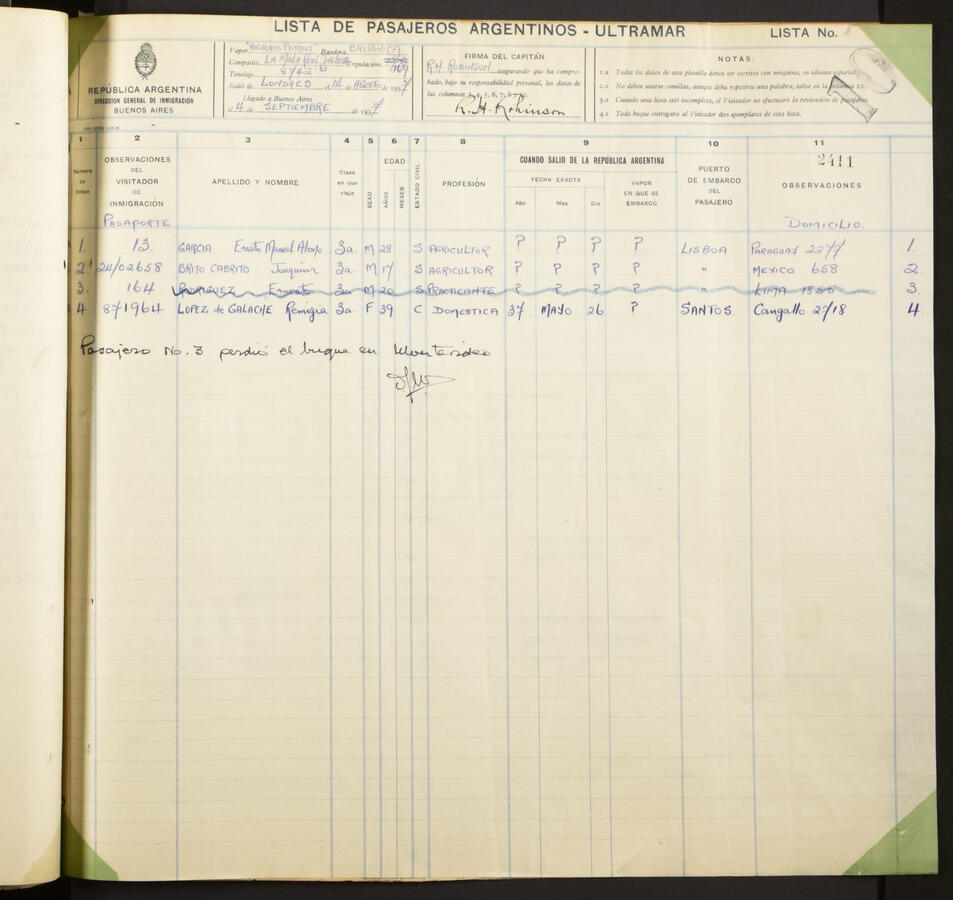 LISTA DE PASAJEROS ARGENTINOS - ULTRAMAR
LISTA No.
REPÚBLICA ARGENTINA
DIRECCION GENERAL DE INMIGRACIÓN
BUENOS AIRES
Vapor "HIGHLAND PATRIOT" Bandera BRITANICA
Compañía LA MALA REAL INGLESA Tripulación 169
Tonelaje 8742
Salió de LONDRES el 14 de AGOSTO de 1937
Llegado a Buenos Aires
el 4 de SEPTIEMBRE de 1937
FIRMA DEL CAPITÁN
R.H. ROBINSON asegurando que ha compro-
bado, bajo su responsabilidad personal, los datos de
las columnas 3, 4, 5, 6, 7, 8, 9, 10.
R. H. Robinson
NOTAS:
1.a Todos los datos de esta planilla deben ser escritos con máquina, en idioma español.
2.a No deben usarse comillas, aunque deba repetirse una palabra, salvo en la columna 10.
3.a Cuando una lista esté incompleta, el Visitador no efectuará la revisación de pasajeros
4.a Todo buque entregará al Visitador dos ejemplares de esta lista.
1 2 3 4 5 6 7 8 9 10 11
Número de Orden
OBSERVACIONES DEL VISITADOR DE INMIGRACIÓN
APELLIDO Y NOMBRE
Clase en que viaja
SEXO
EDAD
AÑOS
MESES
ESTADO CIVIL
PROFESIÓN
CUANDO SALIO DE LA REPUBLICA ARGENTINA
FECHA EXACTA
Año Mes Día
VAPOR EN QUE SE EMBARCÓ
PUERTO DE EMBARCO DEL PASAJERO
2411
OBSERVACIONES
PASAPORTE
DOMICILIO.
1. 13. GARCIA Ernesto Manuel Alonso 3a. M 28 S AGRICULTOR ? ? ? ? LISBOA PARAGUAY 2277 1.
2. 24/02658 BRITO CABRITO Joaquin 3a. M 17 S AGRICULTOR ? ? ? ? " MEXICO 658 2.
3. 164 RODRIGUEZ Ernesto 3a M 20 S PRACTICANTE ? ? ? ? " LIMA 1850 3.
4 871964 LOPEZ de GALACHE Remigia 3a. F 39 C DOMESTICA 37 MAYO 26 ? SANTOS Cangallo 2718 4
Pasajero No. 3 perdió el buque en Montevideo